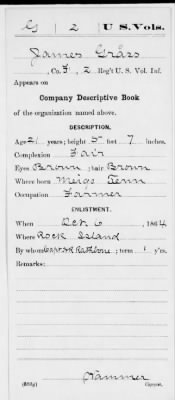 G 2 U S. Vols.
James Grass
, Co. F, 2 Reg't U. S. Vol. Inf.
Appears on
Company Descriptive Book
of the organization named above.
DESCRIPTION.
Age 21 years; height 5 feet 7 inches.
Complexion Fair
Eyes Brown; hair Brown
Where born Meigs Tenn
Occupation Farmer
ENLISTMENT.
When Oct. 6, 1864
Where Rock Island
By whom Capt H R Rathbone; term 1 y'rs.
Remarks:
Hammer
Copyist.